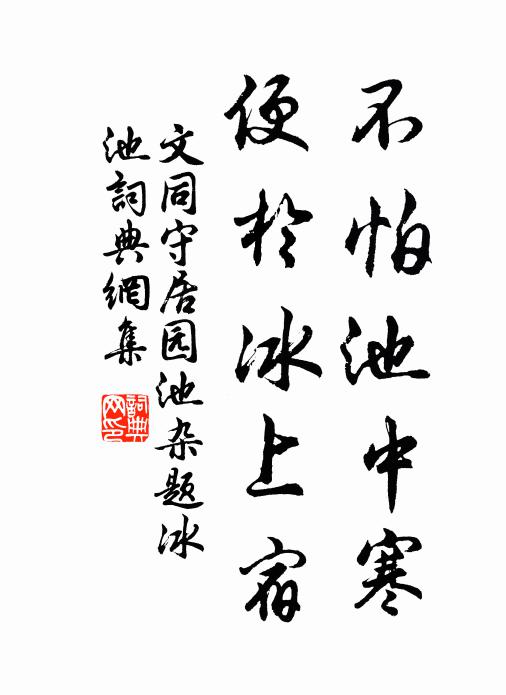 不怕池中寒
便於冰上宿
文同守居园池杂题冰
池詞典網集
詞典网印